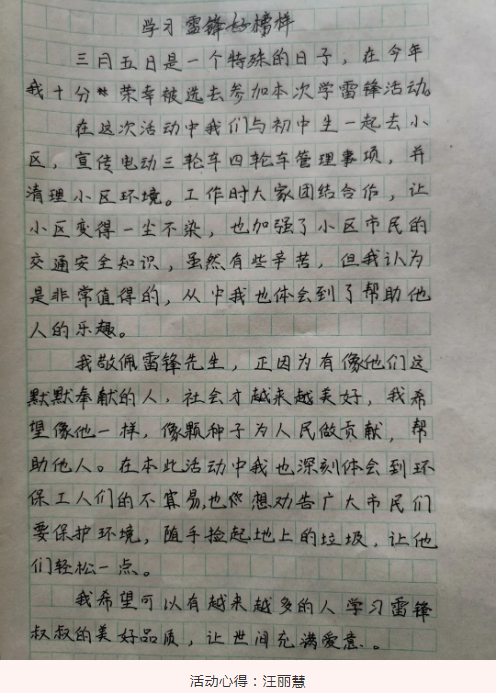 学习雷锋好榜样
三月五日是一个特殊的日子，在今年
我十分荣幸被选去参加本次学雷锋活动。
在这次活动中我们与初中生一起去小
区，宣传电动三轮车四轮车管理事项，并
清理小区环境。工作时大家团结合作，让
小区变得一尘不染，也加强了小区市民的
交通安全知识，虽然有些辛苦，但我认为
是非常值得的，从中我也体会到了帮助他
人的乐趣。
我敬佩雷锋先生，正因为有像他们这
默默奉献的人，社会才越来越美好，我希
望像他一样，像颗种子为人民做贡献，帮
助他人。在本此活动中我也深刻体会到环
保工人们的不容易，也想劝告广大市民们
要保护环境，随手捡起地上的垃圾，让他
们轻松一点。
我希望可以有越来越多的人学习雷锋
叔叔的美好品质，让世间充满爱意。
活动心得：汪丽慧